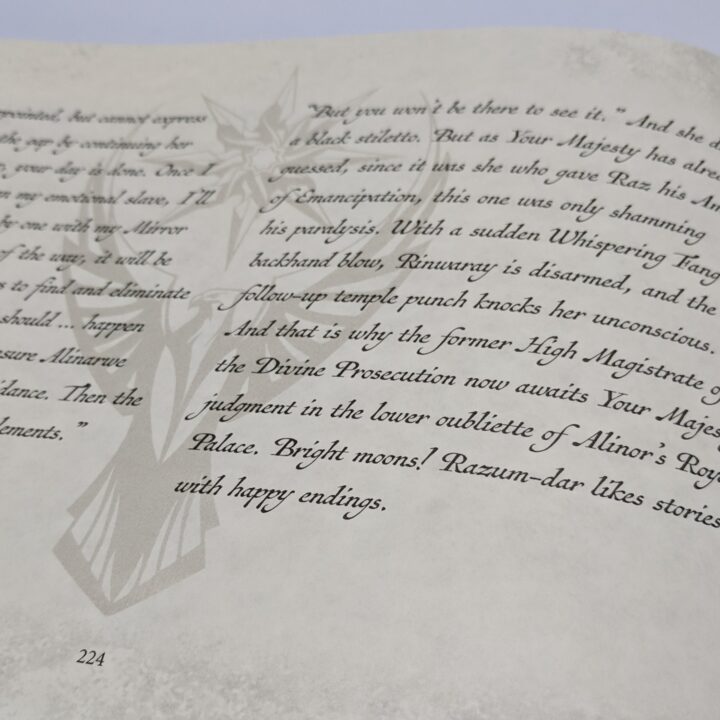 pointed, but cannot express
the gap by continuing her
your day is done. Once I
my emotional slave, I'll
by one with my Mirror
of the way, it will be
s to find and eliminate
should ... happen
sure Alinarwe
idance. Then the
lements."
"But you won't be there to see it." And she d
a black stiletto. But as Your Majesty has alre
guessed, since it was she who gave Raz his Am
of Emancipation, this one was only shamming
his paralysis. With a sudden Whispering Fang
backhand blow, Rinwaray is disarmed, and the
follow-up temple punch knocks her unconscious.
And that is why the former High Magistrate of
the Divine Prosecution now awaits Your Majes
judgment in the lower oubliette of Alinor's Roy
Palace. Bright moons! Razum-dar likes stories
with happy endings.
224